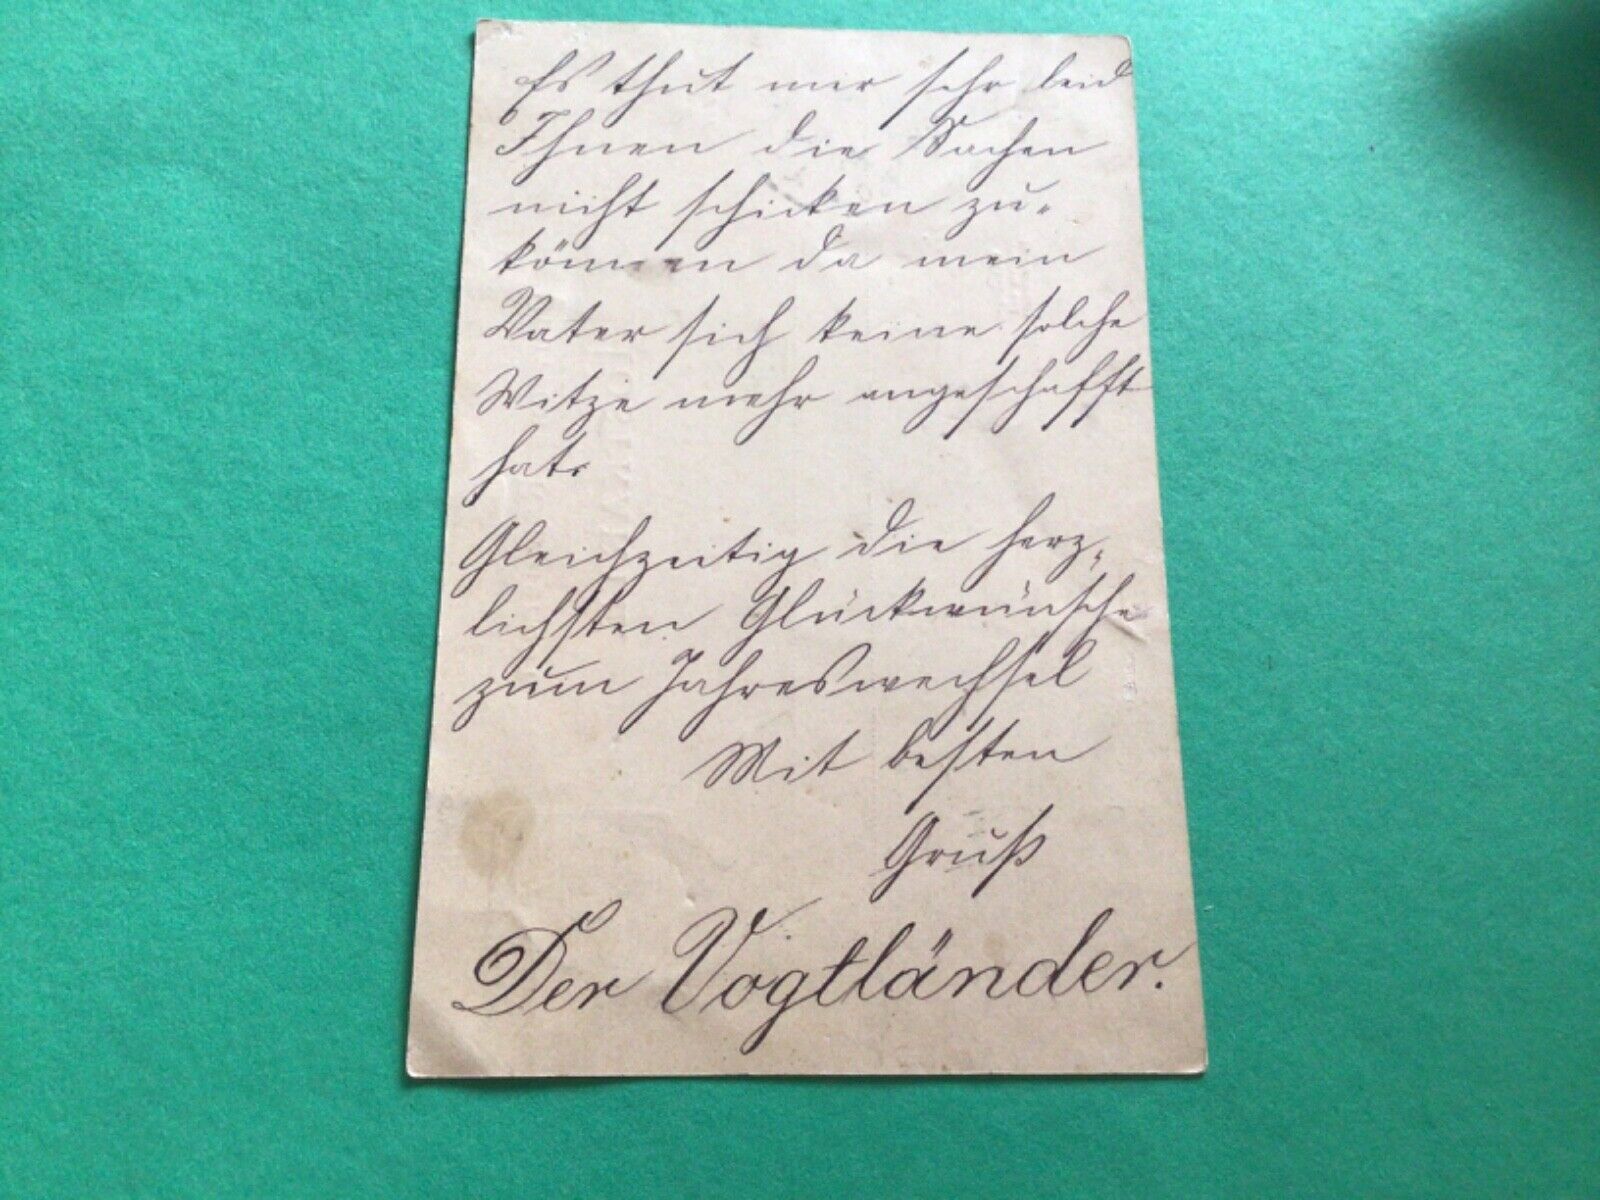 Es thut mir sehr leid
Ihnen die Sachen
nicht schicken zu-
können da mein
Vater sich keine solche
Witze mehr angeschafft
hat.
Gleichzeitig die herz-
lichsten Glückwünsche
zum Jahreswechsel
Mit besten
Gruß
Der Vogtländer.